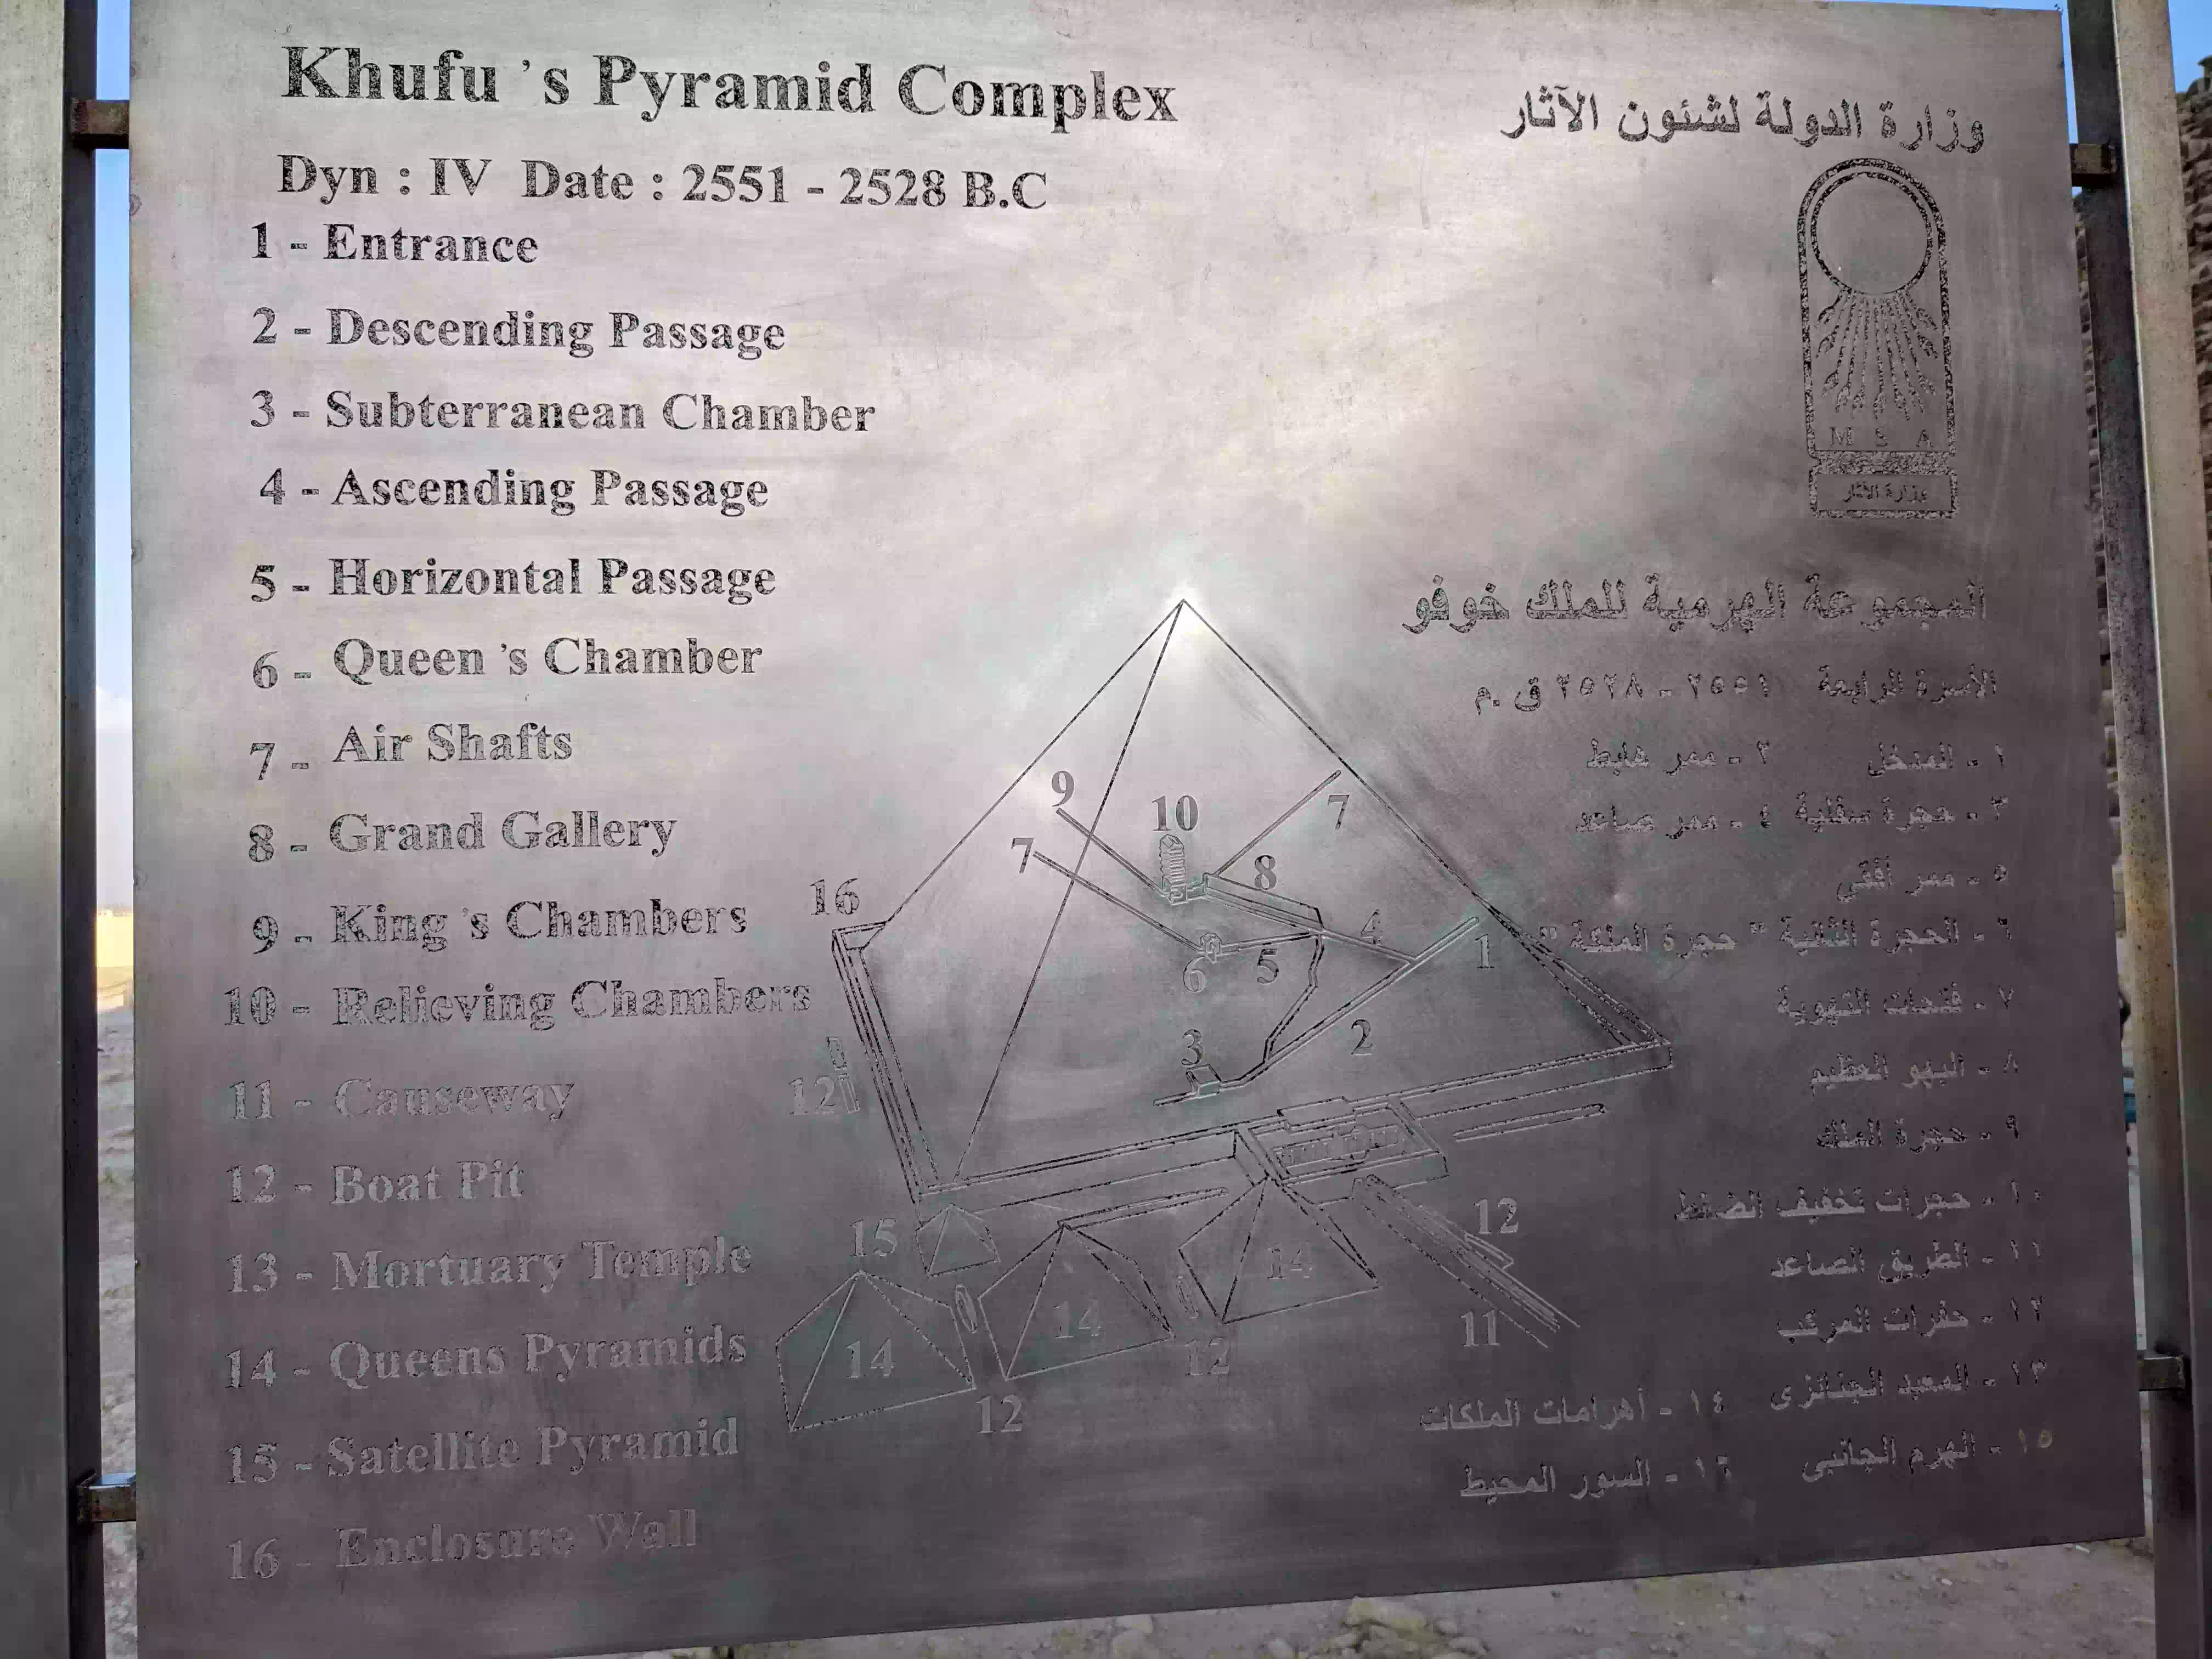 Khufu 's Pyramid Complex
Dyn : IV Date : 2551 - 2528 B.C
1 - Entrance
2 - Descending Passage
3 - Subterranean Chamber
4 - Ascending Passage
5 - Horizontal Passage
6 - Queen 's Chamber
7 - Air Shafts
8 - Grand Gallery
9 - King 's Chambers
10 - Relieving Chambers
11 - Causeway
12 - Boat Pit
13 - Mortuary Temple
14 - Queens Pyramids
15 - Satellite Pyramid
16 - Enclosure Wall
وزارة الدولة لشئون الآثار
M S A
وزارة الآثار
المجموعة الهرمية للملك خوفو
الأسرة الرابعة ٢٥٥١ - ٢٥٢٨ ق .م
١ - المدخل ٢ - ممر هابط
٣ - حجرة سفلية ٤ - ممر صاعد
٥ - ممر أفقى
٦ - الحجرة الثانية " حجرة الملكة "
٧ - فتحات التهوية
٨ - البهو العظيم
٩ - حجرة الملك
١٠ - حجرات تخفيف الضغط
١١ - الطريق الصاعد
١٢ - حفرات المركب
١٣ - المعبد الجنائزى ١٤ - أهرامات الملكات
١٥ - الهرم الجانبى ١٦ - السور المحيط
9
10
7
7
8
16
4
1
6
5
3
2
12
15
12
14
14
14
11
12
12